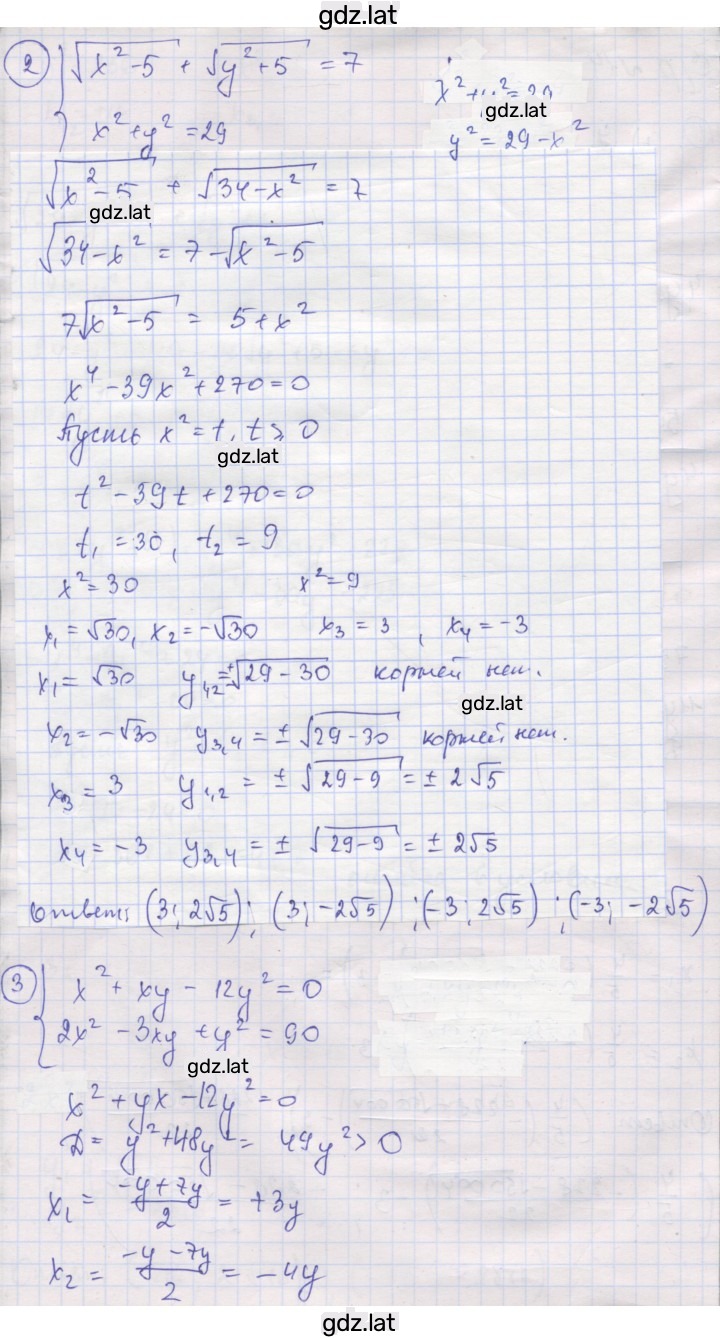 gdz.lat
2 { √x²-5 + √y²+5 = 7
x²+y²=29
x²+y²=29
gdz.lat
y²=29-x²
√x²-5 + √34-x² = 7
gdz.lat
√34-x² = 7-√x²-5
7√x²-5 = 5+x²
x⁴-39x²+270=0
Пусть x²=t, t≥0
gdz.lat
t²-39t+270=0
t₁=30, t₂=9
x²=30 x²=9
x₁=√30, x₂=-√30 x₃=3, x₄=-3
x₁=√30 y₁,₂=±√29-30 корней нет.
gdz.lat
x₂=-√30 y₃,₄=±√29-30 корней нет.
x₃=3 y₁,₂=±√29-9=±2√5
x₄=-3 y₃,₄=±√29-9=±2√5
Ответ: (3; 2√5); (3; -2√5); (-3; 2√5); (-3; -2√5)
3 { x²+xy-12y²=0
2x²-3xy+y²=90
gdz.lat
x²+yx-12y²=0
D=y²+48y²=49y²>0
x₁=(-y+7y)/2=+3y
x₂=(-y-7y)/2=-4y
gdz.lat